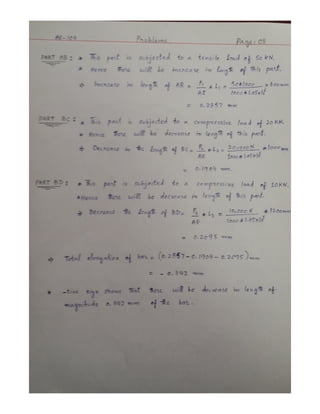 AE-104 Problems Page: 03
PART AB: * This part is subjected to a tensile load of 50 KN.
* Hence there will be increase in length of this part.
⇒ Increase in length of AB = P₁/AE * L₁ = * 600mm
= 0.2857 mm
PART BC: * This part is subjected to a compressive load of 20 KN.
* Hence there will be decrease in length of this part.
⇒ Decrease in the length of BC = P₂/AE * L₂ = * 1000mm
= 0.1904 mm.
PART BD: * This part is subjected to a compressive load of 10KN.
* Hence there will be decrease in length of this part
⇒ Decrease the length of BD = * L₃ = * 1200mm
= 0.2095 mm
⇒ Total elongation of bar = (0.2857 - 0.1904 - 0.2095) mm
= - 0. mm
* -tive sign shows that there will be decrease in length of
magnitude 0. mm of the bar.